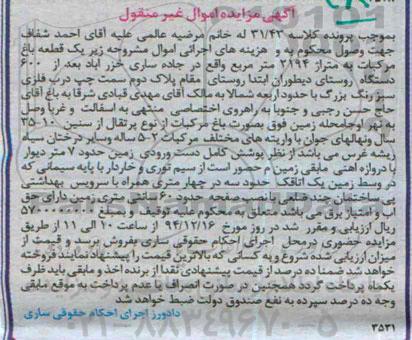 آگهی مزایده اموال غیر منقول
بموجب پرونده کلاسه ۳۱/۴۳ له خانم مرضیه عالمی علیه آقای احمد شفاف
جهت وصول محکوم به و هزینه های اجرائی اموال مشروحه زیر یک قطعه باغ
مرکبات به متراژ ۲۱۹۴ متر مربع واقع در جاده ساری خزر اباد بعد از ۶۰۰
دستگاه روستای دیطوران ابتدا روستای مقام پلاک دوم سمت چپ درب فلزی
بزرگ بزرگ با حدود اربعه شمالا به مالک آقای مهدی قبادی شرقا به باغ آقای
حاج حسن رجبی و جنوبا به راهروی اختصاصی منتهی به اسفالت و غربا وصل
به نهر اوجامحله زمین فوق بصورت باغ مرکبات از نوع پرتقال از سنین ۱۰-۳۵
سال ونهالهای جوان با واریته های مختلف مرکبات ۲-۵ ساله وسایر درختان سیاه
ریشه غرس می باشد از نظر پوشش کامل دست ورودی زمین حدود ۷ متر دیوار
با دروازه اهنی مابقی زمین م حصور است از سیم توری و خاردار با پایه سیمانی که
در وسط زمین یک اتاقک حدود سه در چهار متری همراه با سرویس بهداشتی
پی ساختمان چند ضلعی با سقف حدود ۶۰ متری زمین دارای حق
اب و امتیاز برق می باشد متعلق به محکوم علیه توقیف و بمبلغ ۵۷۰۰۰۰۰۰۰
ریال ارزیابی و مقرر شد در روز مورخ ۹۴/۱۲/۱۶ از ساعت ۱۰ الی ۱۱ از طریق
مزایده حضوری درمحل اجرای احکام حقوقی ساری بفروش برسد و قیمت از
میزان ارزیابی شده شروع و به کسانی که بالاترین قیمت را پیشنهاد نمایند فروخته
خواهد شد ضمنا ده درصد از قیمت پیشنهادی نقدا از برنده اخذ و مابقی باید ظرف
یکماه پرداخت گردد همچنین در صورت انصراف یا عدم پرداخت به موقع مابقی
وجه ده درصد سپرده به نفع صندوق دولت ضبط خواهد شد
دادورز اجرای احکام حقوقی ساری
۳۵۳۱
۰۲۱-۸۸۳۴۹۶۷۰-۵